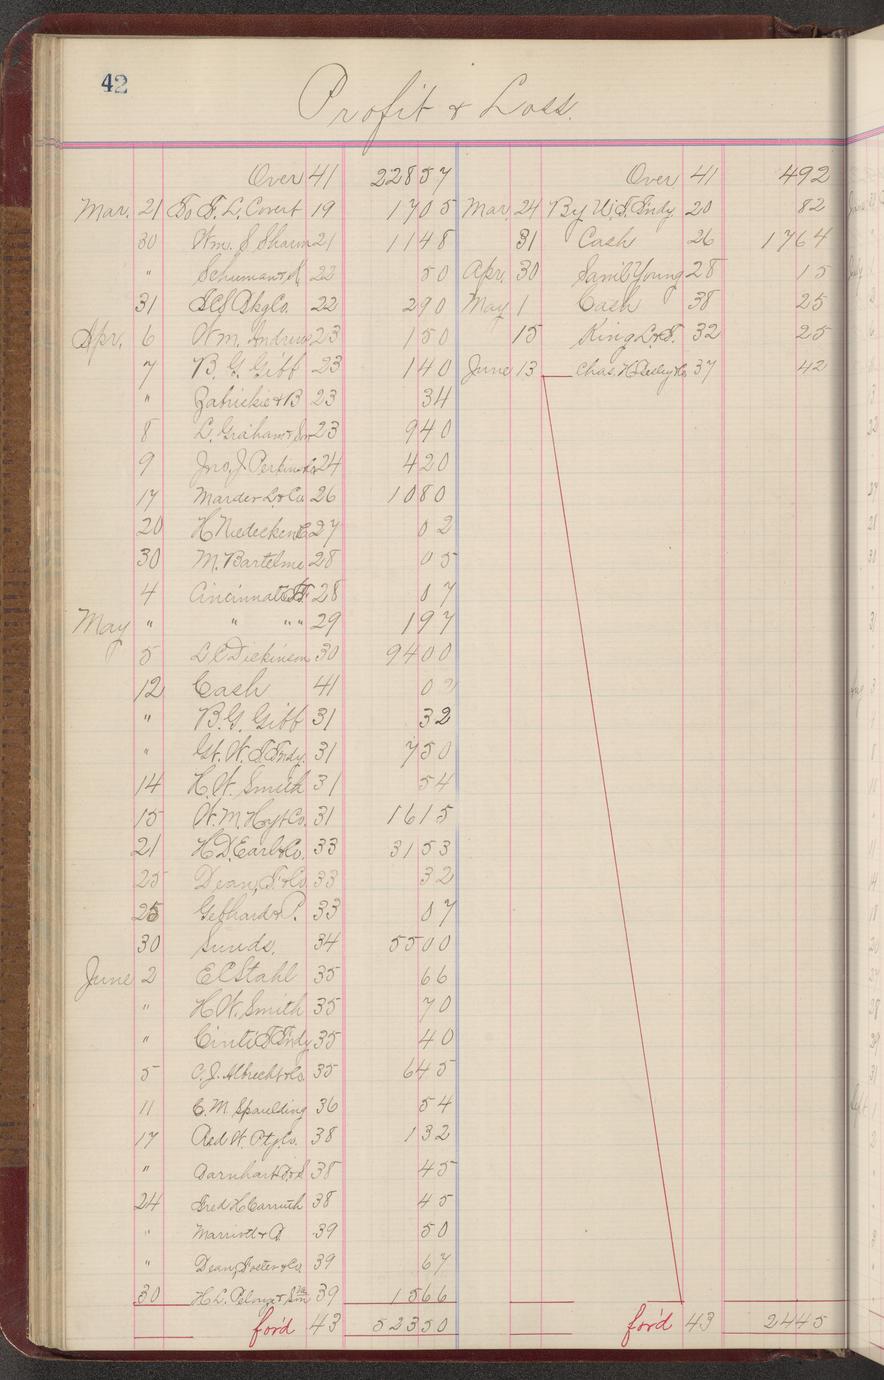 42
Profit & Loss.
Over 41 228 57
Mar. 21 To F. L. Covert 19 17 05
30 Wm. S. 21 11 48
" Schuman & 22 50
31 Pkg Co. 22 2 90
Apr. 6 Wm. Andrews 23 1 50
7 B. G. Giff 23 1 40
" & B 23 34
8 L. Graham & Son 23 9 40
9 Jno. J. Perkins & Co 24 4 20
17 Marder L. & Co. 26 10 80
20 H Niedecken Co 27 02
30 M. Bartelme 28 05
4 Cincinnati 28 07
May " " " " 29 1 97
5 L C Dickinson 30 94 00
12 Cash 41 02
" B. G. Giff 31 32
" Gt. W. T. Fndy. 31 7 50
14 H. W. Smith 31 54
15 W. M. Hoyt Co. 31 16 15
21 H D. Earl & Co. 33 31 53
25 Dean, F. & Co 33 32
25 Gebhard & P. 33 07
30 Sunds. 34 55 00
June 2 E C Stahl 35 66
" H W. Smith 35 70
" Cinti T. Fndy 35 40
5 C. J. Albrecht & Co. 35 6 45
11 C. M. Spaulding 36 54
17 Red W. Ptg. Co. 38 1 32
" Barnhart B. & S 38 45
24 Fred H Carruth 38 45
" Marriott & 39 50
" Dean, Foster & Co 39 67
30 H. L. & Son 39 15 66
for'd 43 523 50
Over 41 4 92
Mar. 24 By U. T. Fndy 20 82
31 Cash 26 17 64
Apr. 30 Saml Young 28 15
May 1 Cash 38 25
15 King L. & T. 32 25
June 13 Chas. H. & Co 37 42
for'd 43 24 45